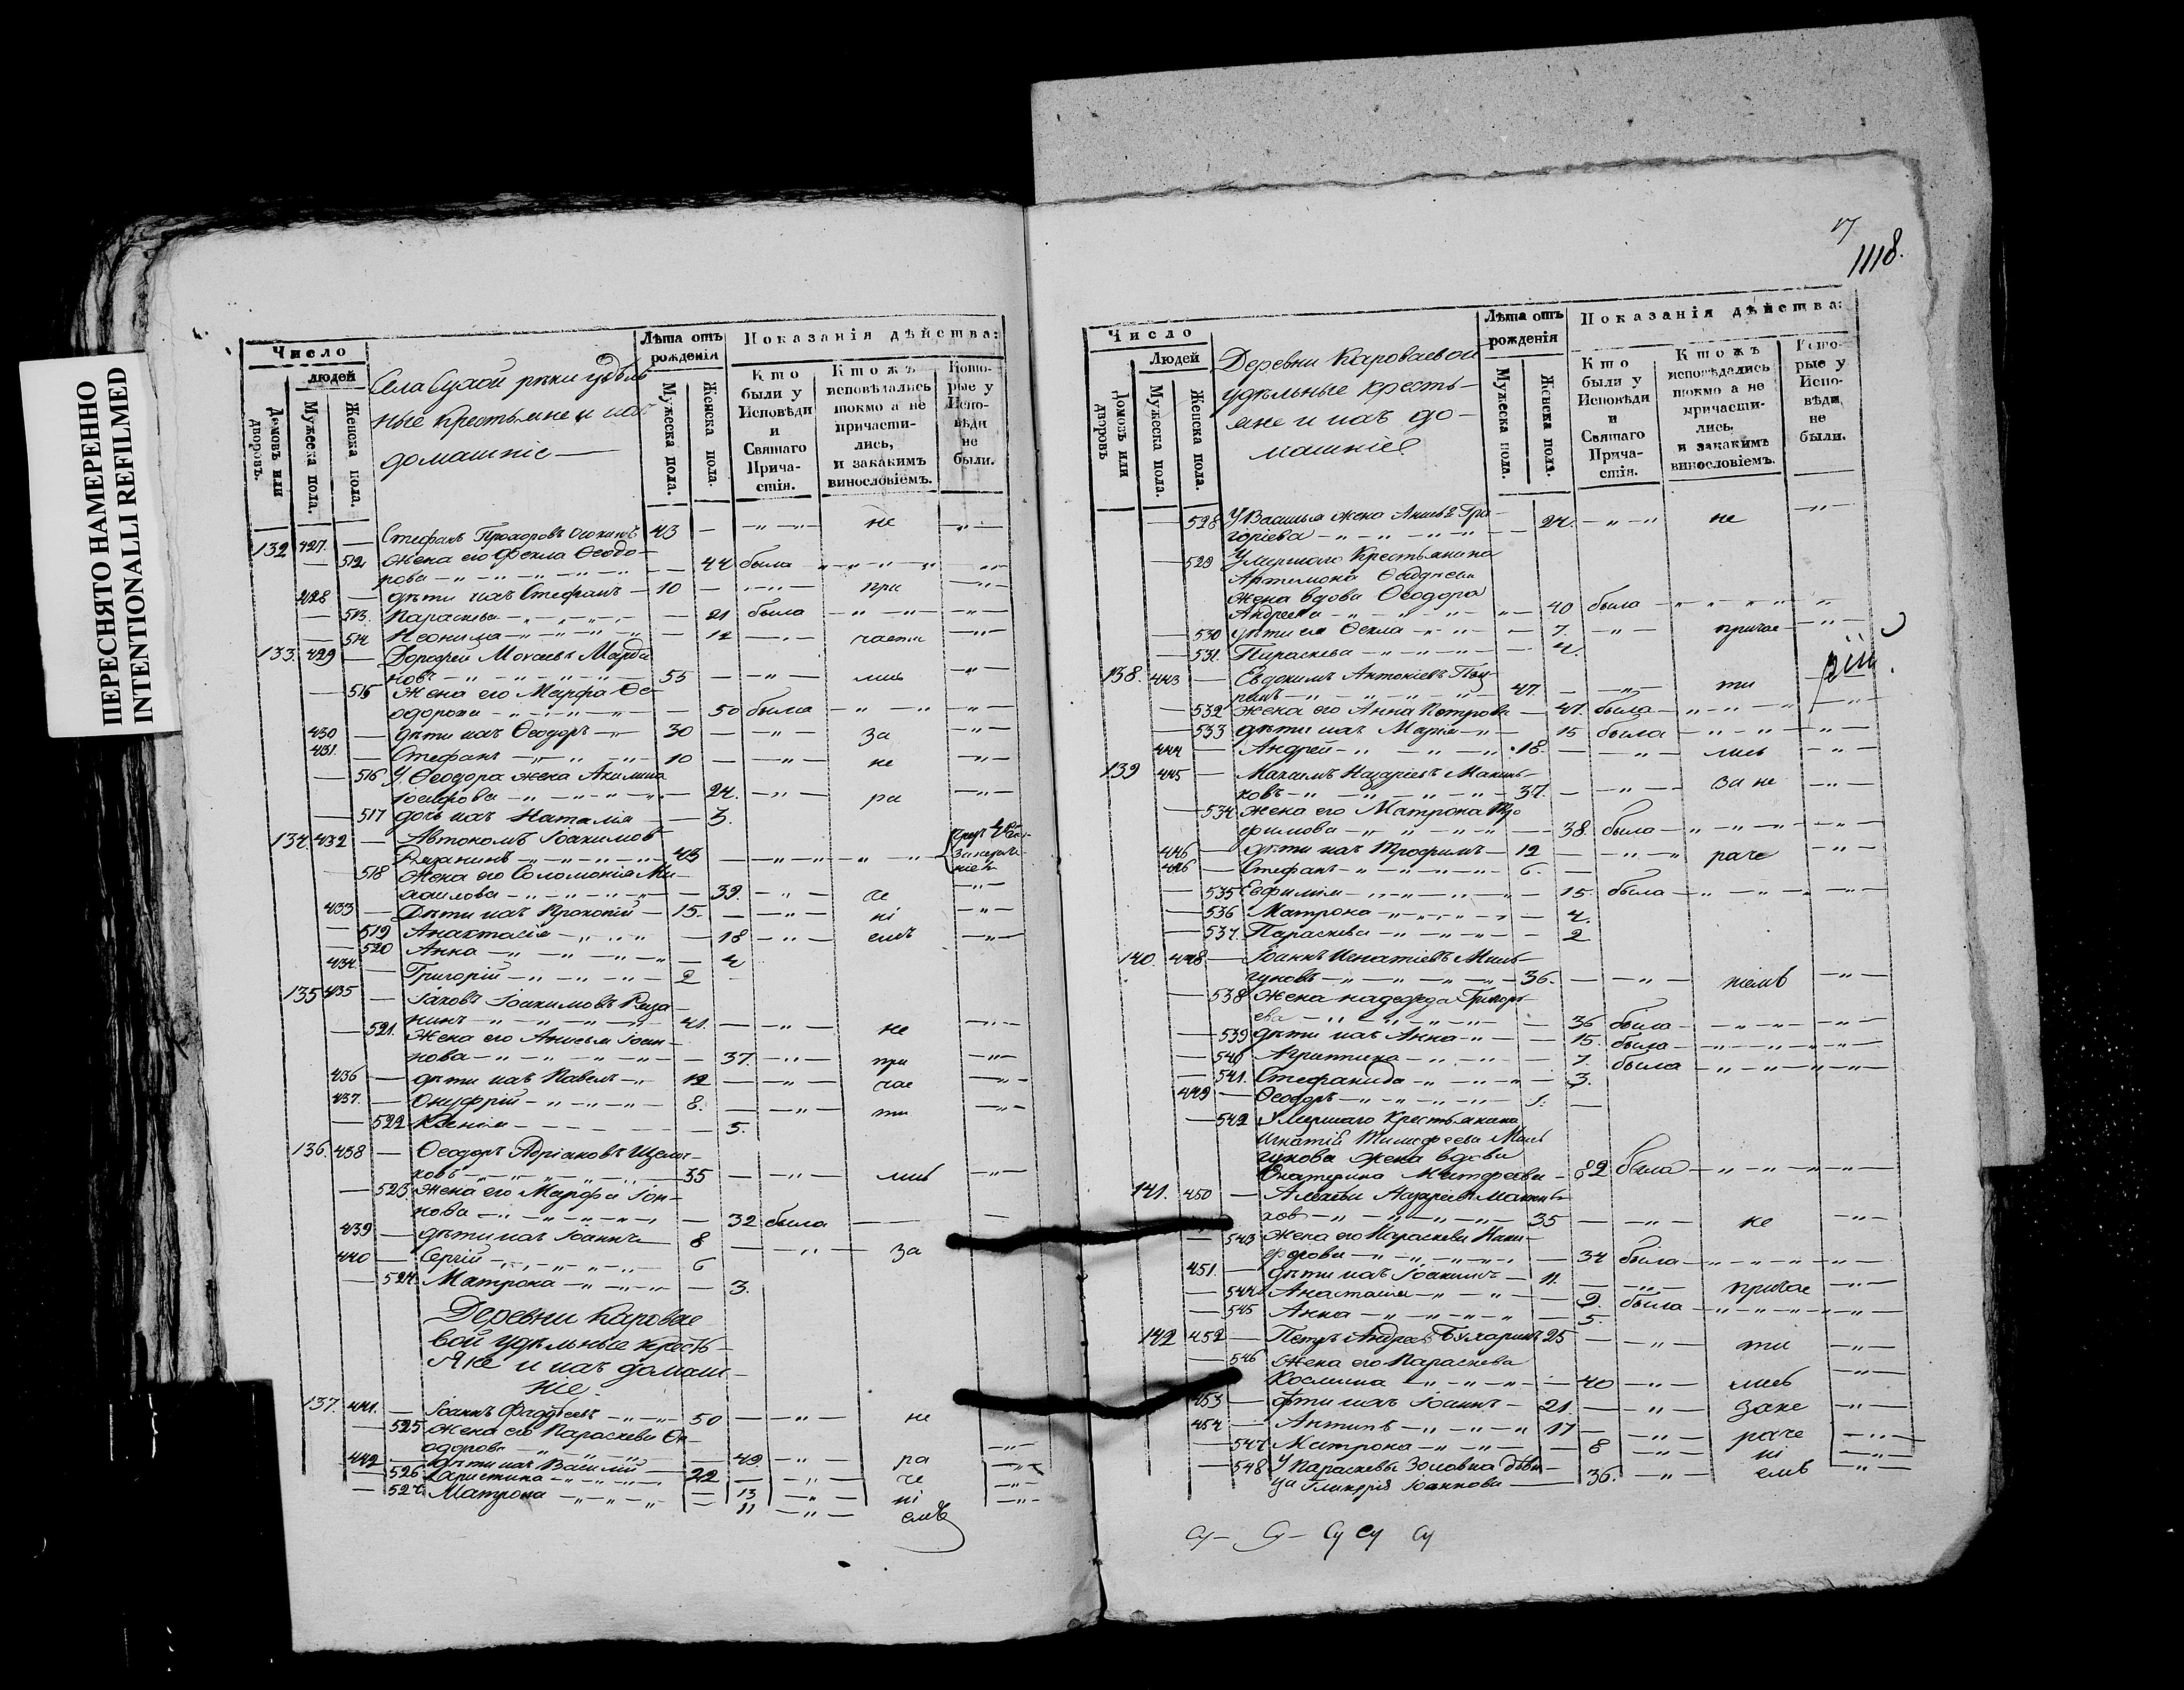 ПЕРЕСНЯТО НАМЕРЕННО
INTENTIONALLI REFILMED
Число
людей
Домовъ или дворовъ.
Мужеска пола.
Женска пола.
Села Сухой рѣки удѣль
ные Крестьяне и ихъ
домашніе —
Лѣта отъ рожденія
Мужеска пола.
Женска пола.
Показанія дѣйства:
Кто были у Исповѣди и Святаго Причастія.
Ктожъ исповѣдались токмо а не причастились, и закакимъ винословіемъ.
Которые у Исповѣди не были.
132 427. — Стефанъ Прохоровъ 43 — не
— 512 Жена его Фекла Ѳеодо-
рова — 44 была
428 — дѣти ихъ Стефанъ — 10 — при
— 513. Параскева — 21 была
— 514 Неонила — 12 — части
133. 429 — Дорофей
новъ — 55 — лись
— 515 Жена его Марфа Ѳе-
одорова — 50 была
430 — дѣти ихъ Ѳеодоръ 30 — за
431. — Стефанъ — 10 — не
— 516 У Ѳеодора жена Акилина
Іосифова — 24. — ра
— 517 дочь ихъ Наталія — 3.
134. 432 — Автономъ Іоакимов
Резанинъ — 43
— 518 Жена его Соломонія Ми-
хаилова — 39. — че
433 — Дѣти ихъ Прокопій — 15. — ні
— 519 Анастасія — 18 — емъ
— 520 Анна — 4
434. — Григорій — 2
135 435 — Іаковъ Іоакимовъ Реза-
нинъ — 41. — не
— 521. Жена его Анисья Іоан-
нова — 37. — при
436 — дѣти ихъ Павелъ 12 — час
437. — Онуфрій — 8. — ти
— 522 Ксенія — 5.
136. 438 — Ѳеодоръ Адріановъ
ковъ — 35 — лись
— 523. Жена его Марфа Іоан-
нова — 32 была
439 — дѣти ихъ Іоаннъ 8 — за
440 — Сергій — 6
— 524. Матрона — 3.
Деревни Каровае
вой удѣльные кресть-
яне и ихъ домаш-
ніе.
137. 441. — Іоаннъ Фаддѣевъ — 50 — не
— 525 Жена его Параскева Ѳе-
одорова — 49. — ра
442 — дѣти ихъ Василій — 22 — че
— 526 Христина — 13 — ні
— 527. Матрона — 11 — емъ
17
1118.
Число
Людей
Домовъ или дворовъ
Мужеска пола.
Женска пола.
Деревни Кароваевой
удѣльные кресть-
яне и ихъ до-
машніе
Лѣта отъ рожденія
Мужеска пола.
Женска пола.
Показанія дѣйства:
Кто были у Исповѣди и Святаго Причастія.
Ктожъ исповѣдались токмо а не причастились. и закакимъ винословіемъ.
Которые у Исповѣди не были.
— 528 У Василья жена Анисья Гри-
горіева — 24. — не
— 529 Умершаго Крестьянина
Артемона Ѳаддѣева
жена вдова Ѳеодора
Андреева — 40 была
— 530 дѣти ея Ѳекла — 7. — причас
— 531. Параскева — 4.
138. 443 — Евдокимъ Антоніевъ
47. — ти
— 532 жена его Анна Петрова — 47. была
— 533 дѣти ихъ Марія — 15 была
444 — Андрей — 18 — лись
139 445 — Максимъ Назаріевъ
ковъ — 37. — за не
— 534 жена его Матрона Тро-
фимова — 38. была
446 — дѣти ихъ Трофимъ — 12 — раче
446 — Стефанъ — 6. —
— 535 Евфимія — 15. была
— 536 Матрона — 4.
— 537. Параскева — 2
140. 448 — Іоаннъ Игнатіевъ
гуновъ — 36. — ніемъ
— 538 Жена Надежда Григорь-
ева — 36 была
— 539 дѣти ихъ Анна — 15. была
— 540 Агрипина — 7. была
— 541. Стефанида — 3.
449 — Ѳеодоръ — 1. —
— 542 Умершаго Крестьянина
Игнатій Тимофеева
гунова жена вдова
Екатерина — 82 была
141. 450 — Алексѣй Назарьевъ
ков — 35 — не
— 543 Жена его Параскева Ники-
форова — 34 была
451. — дѣти ихъ Іоакимъ — 11. — причас
— 544 Анастасія — 9. была
— 545 Анна — 5.
142 452 — Петръ Андреевъ Бухаринъ 25 — ти
— 546 Жена его Параскева
Космина — 40 — лись
453 — дѣти ихъ Іоаннъ — 21. — зане
454 — Антипъ — 17 — раче
— 547 Матрона — 8 — ні
— 548 У Параскевы Золовка дѣви-
ца Гликерія Іоаннова — 36. — емъ